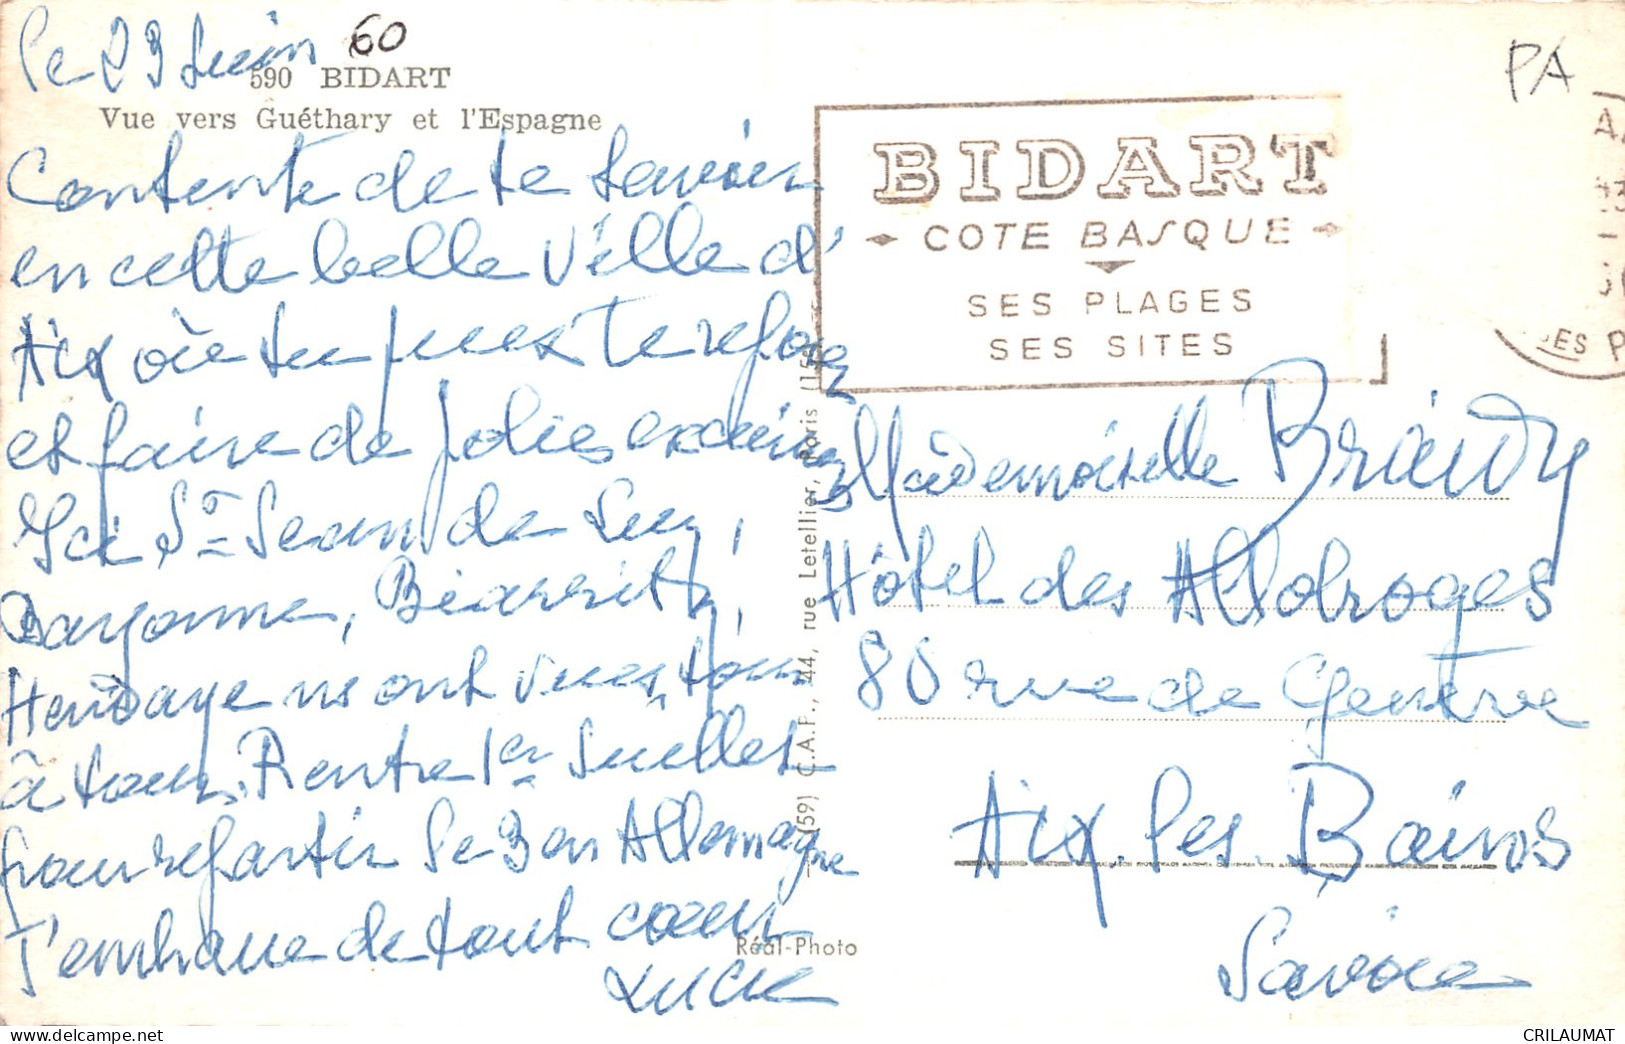 le 23 Juin 60
590 BIDART
Vue vers Guéthary et l'Espagne
Contente de te savoir
en cette belle Ville d'
Aix où tu peux te reposer
et faire de jolies excursions
Ici St Jean de Luz,
Bayonne, Biarritz,
Hendaye ns ont vues tour
à tour. Rentre 1er Juillet
pour repartir le 3 en Allemagne
J'embrasse de tout cœur
Lucie
(59) C.A.P., 44, rue Letellier, Paris (15e
Réal-Photo
PA
BIDART
COTE BASQUE
SES PLAGES
SES SITES
Mademoiselle
Hôtel des Allobroges
80 rue de Genève
Aix. les. Bains
Savoie
CRILAUMAT